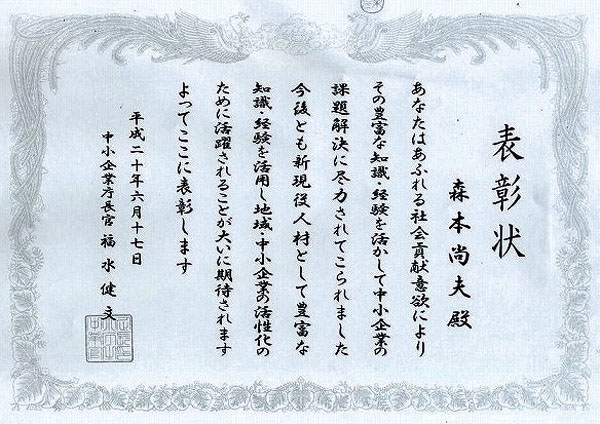 表彰状
森本尚夫殿
あなたはあふれる社会貢献意欲により
その豊富な知識・経験を活かして中小企業の
課題解決に尽力されてこられました
今後とも新現役人材として豊富な
知識・経験を活用し地域・中小企業の活性化の
ために活躍されることが大いに期待されます
よってここに表彰します
平成二十年六月十七日
中小企業庁長官 福水健文